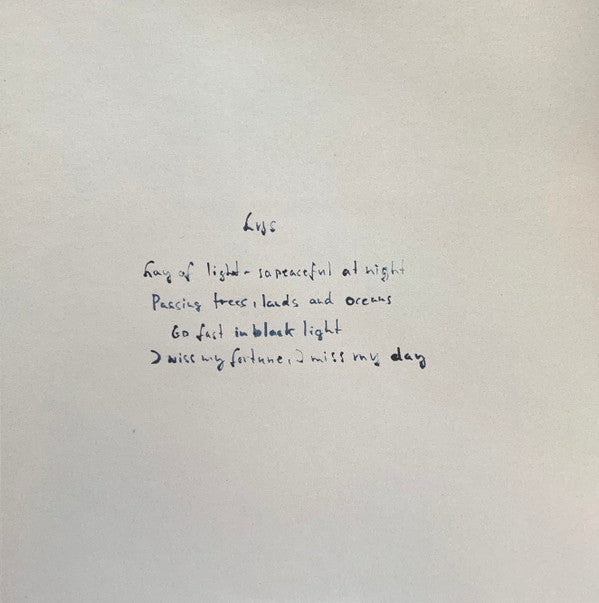 Lys
Lay of light - so peaceful at night
Passing trees, lands and oceans
Go fast in black light
I miss my fortune, I miss my day